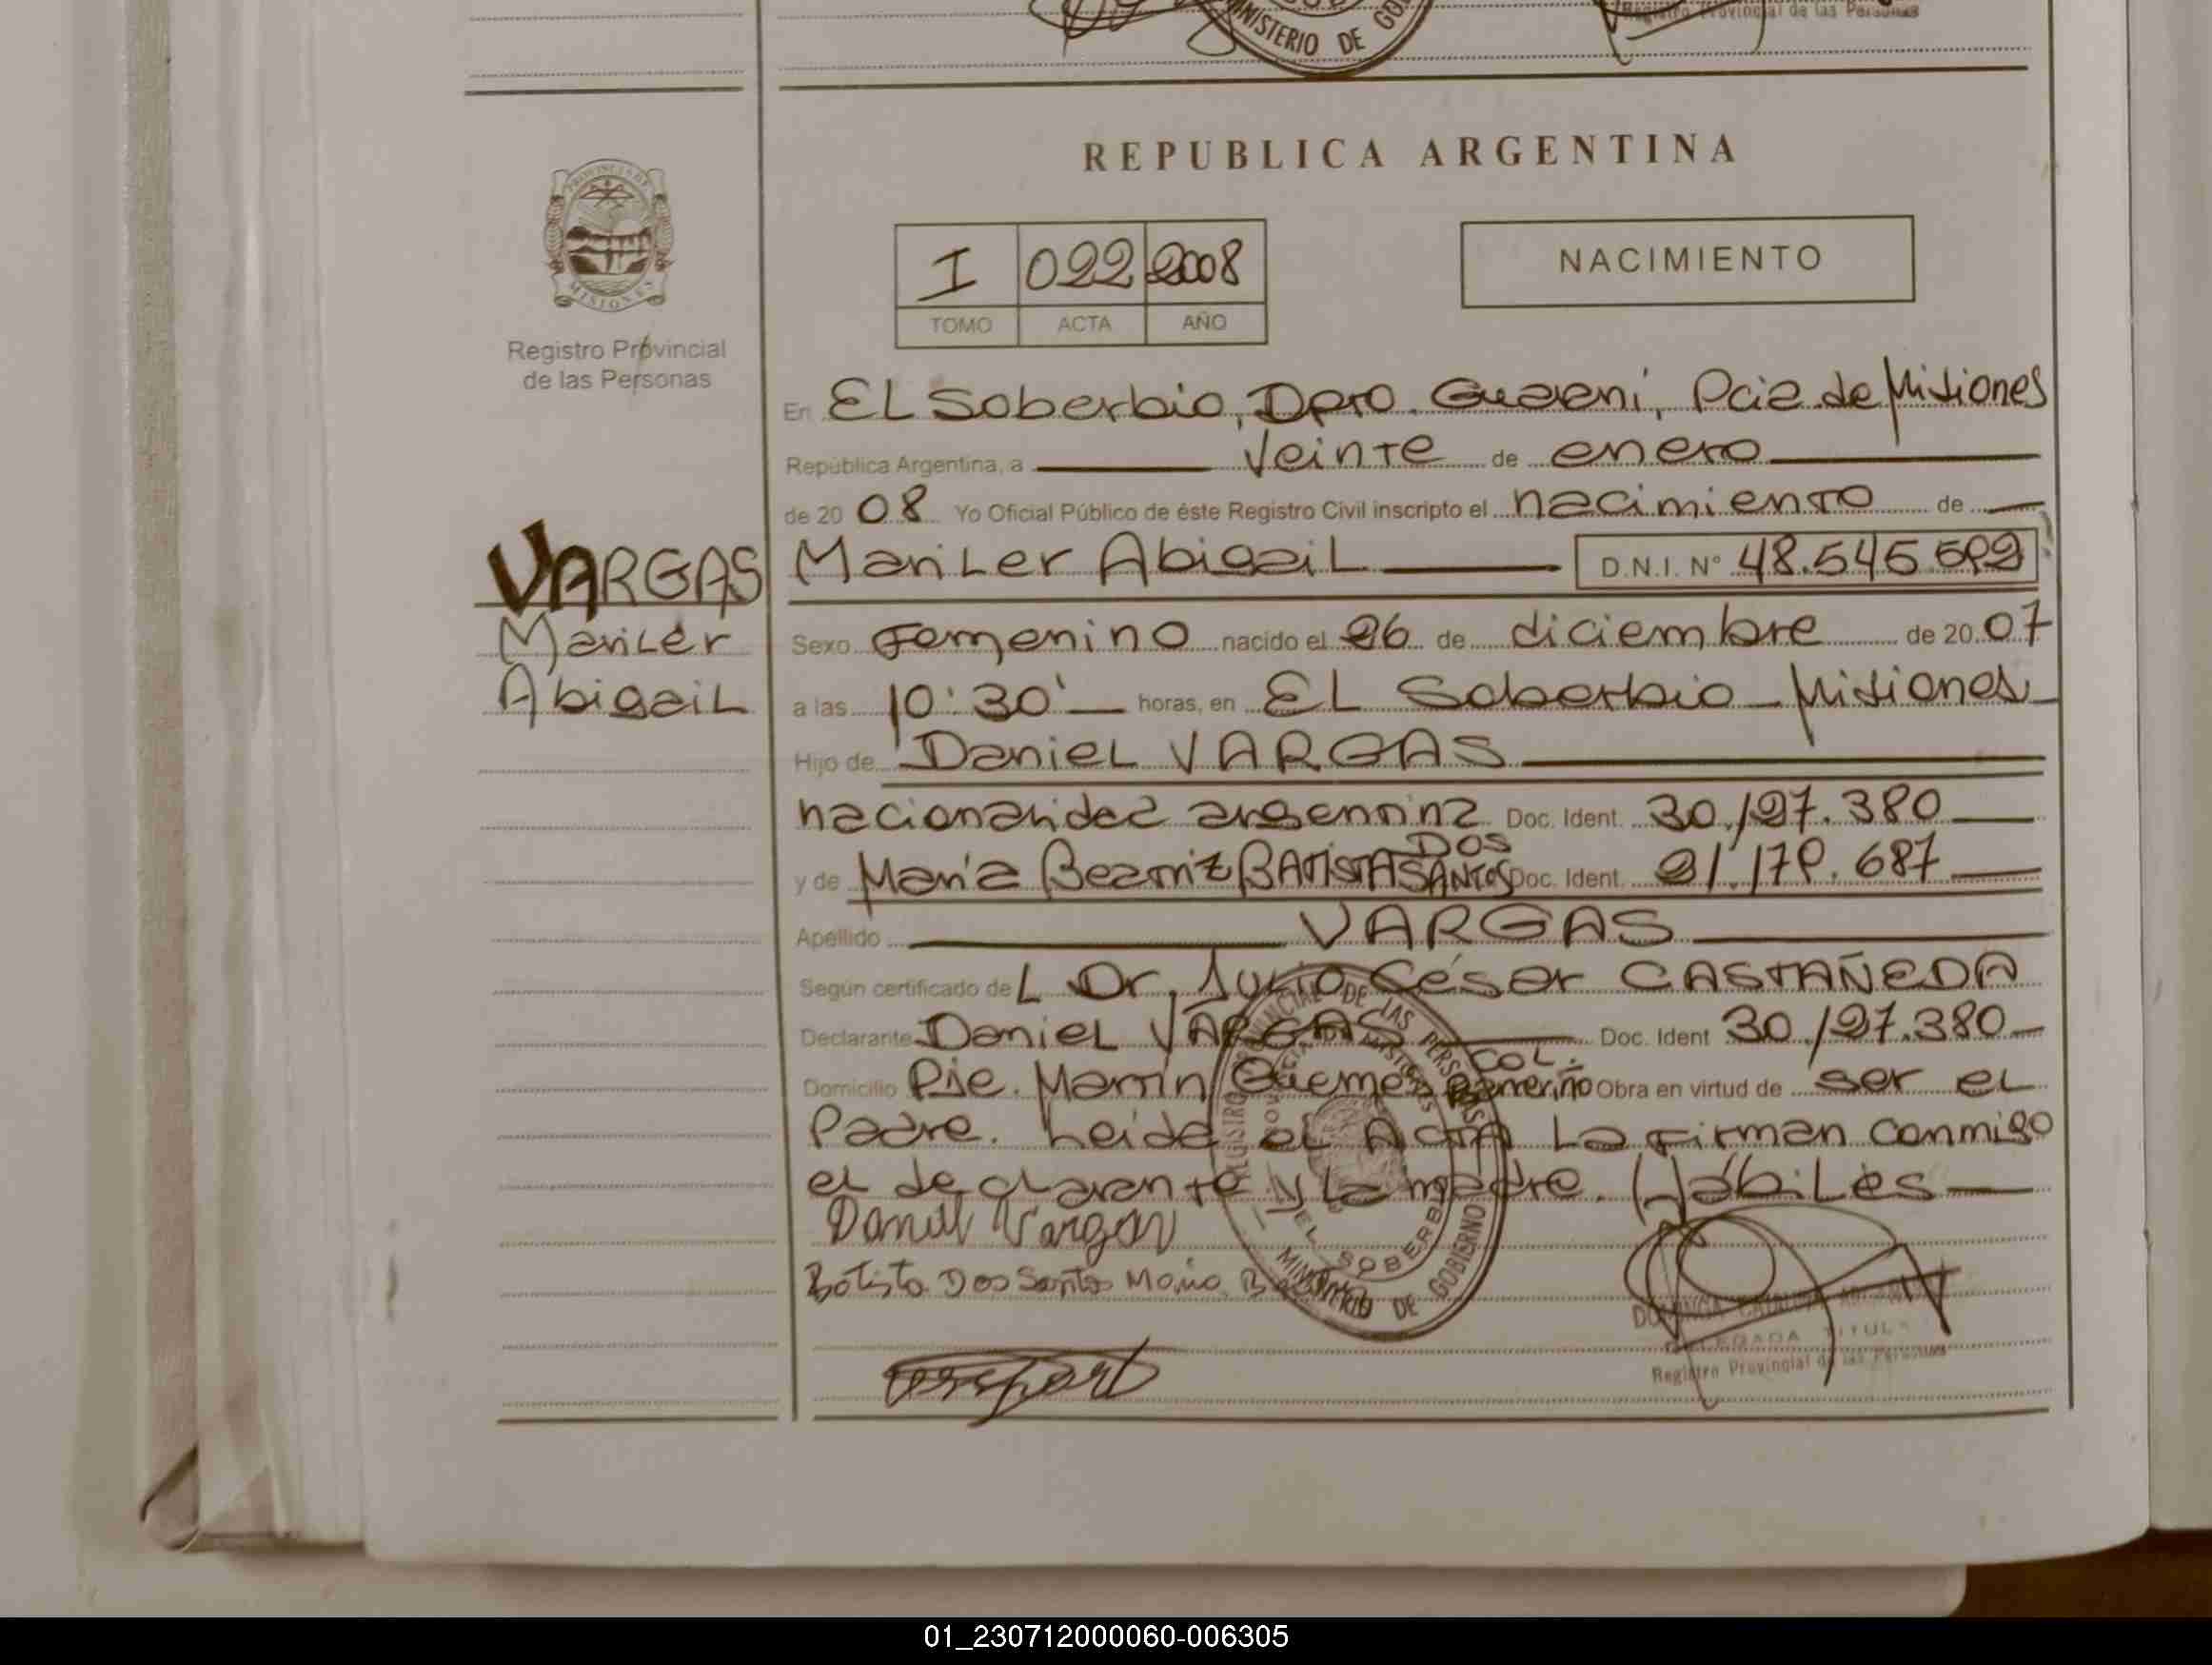 MINISTERIO DE GO
Registro Provincial de las Personas
REPUBLICA ARGENTINA
PROVINCIA DE
MISIONES
Registro Provincial
de las Personas
I 022 2008
TOMO ACTA AÑO
NACIMIENTO
En EL Soberbio, Dpto. Guaraní, Pcia de Misiones
República Argentina, a veinte de enero
de 2008 Yo Oficial Público de éste Registro Civil inscripto el nacimiento de
VARGAS
Mariler
Abigail
Mariler Abigail D.N.I. Nº 48.545.592
Sexo Femenino nacido el 26 de diciembre de 2007
a las 10:30' horas, en EL Soberbio - Misiones
Hijo de Daniel VARGAS
nacionalidad argentina Doc. Ident. 30.127.380
y de María Beatriz BATISTA DOS SANTOS Doc. Ident. 21.179.687
Apellido VARGAS
Según certificado de L Dr. Julio César CASTAÑEDA
Declarante Daniel VARGAS Doc. Ident 30.127.380
Domicilio Pje. Martín Güemes Col. Obra en virtud de ser el
Padre. Leída el Acta La firman conmigo
el declarante y la madre. (Hábiles
Daniel Vargas
Batista Dos Santos Maria
REGISTRO PROVINCIAL DE LAS PERSONAS
EL SOBERBIO
MINISTERIO DE GOBIERNO
Registro Provincial de las Personas
01_230712000060-006305